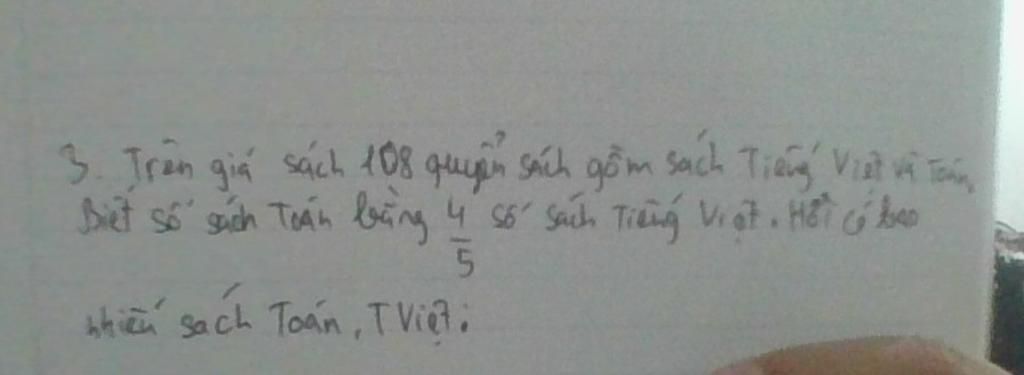 3. Trên giá sách 108 quyển sách gồm sách Tiếng Việt và Toán.
Biết số sách Toán bằng 4/5 số sách Tiếng Việt. Hỏi có bao
nhiêu sách Toán, TViệt: